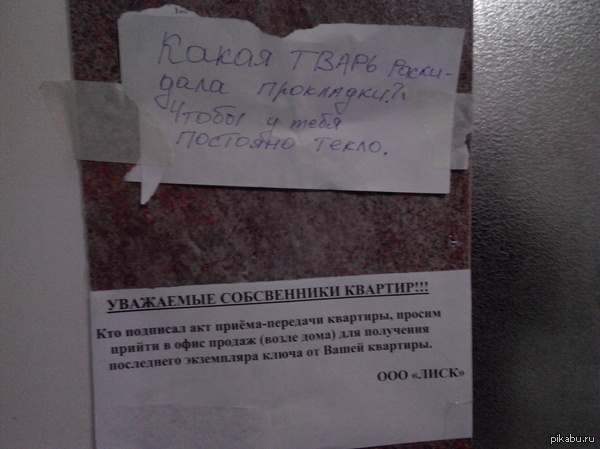 Какая ТВАРЬ раски-
дала прокладки?
Чтобы у тебя
постояно текло.
УВАЖАЕМЫЕ СОБСВЕННИКИ КВАРТИР!!!
Кто подписал акт приёма-передачи квартиры, просим
прийти в офис продаж (возле дома) для получения
последнего экземпляра ключа от Вашей квартиры.
ООО «ЛИСК»
pikabu.ru